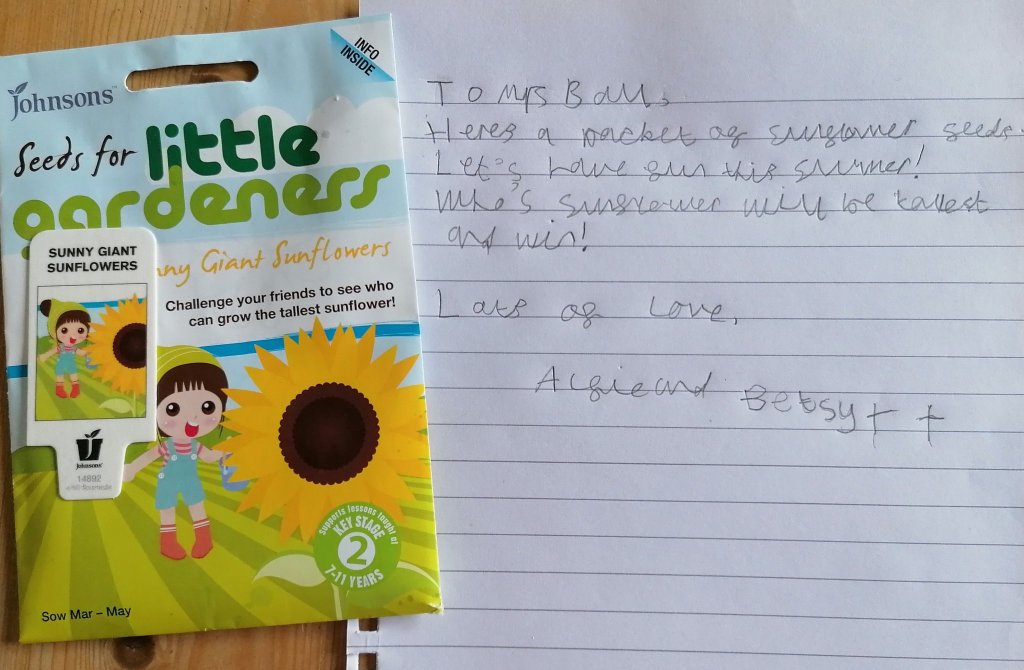 INFO
INSIDE
Johnsons™
Seeds for little
gardeners
nny Giant Sunflowers
Challenge your friends to see who
can grow the tallest sunflower!
SUNNY GIANT
SUNFLOWERS
Johnsons
14892
Supports lessons taught at
KEY STAGE
2
7-11 YEARS
Sow Mar – May
To Mrs Ball,
Heres a packet of sunflower seeds.
Let's have fun this summer!
Who's sunflower will be tallest
and win!
Lots of love,
Alfie and Betsy + +